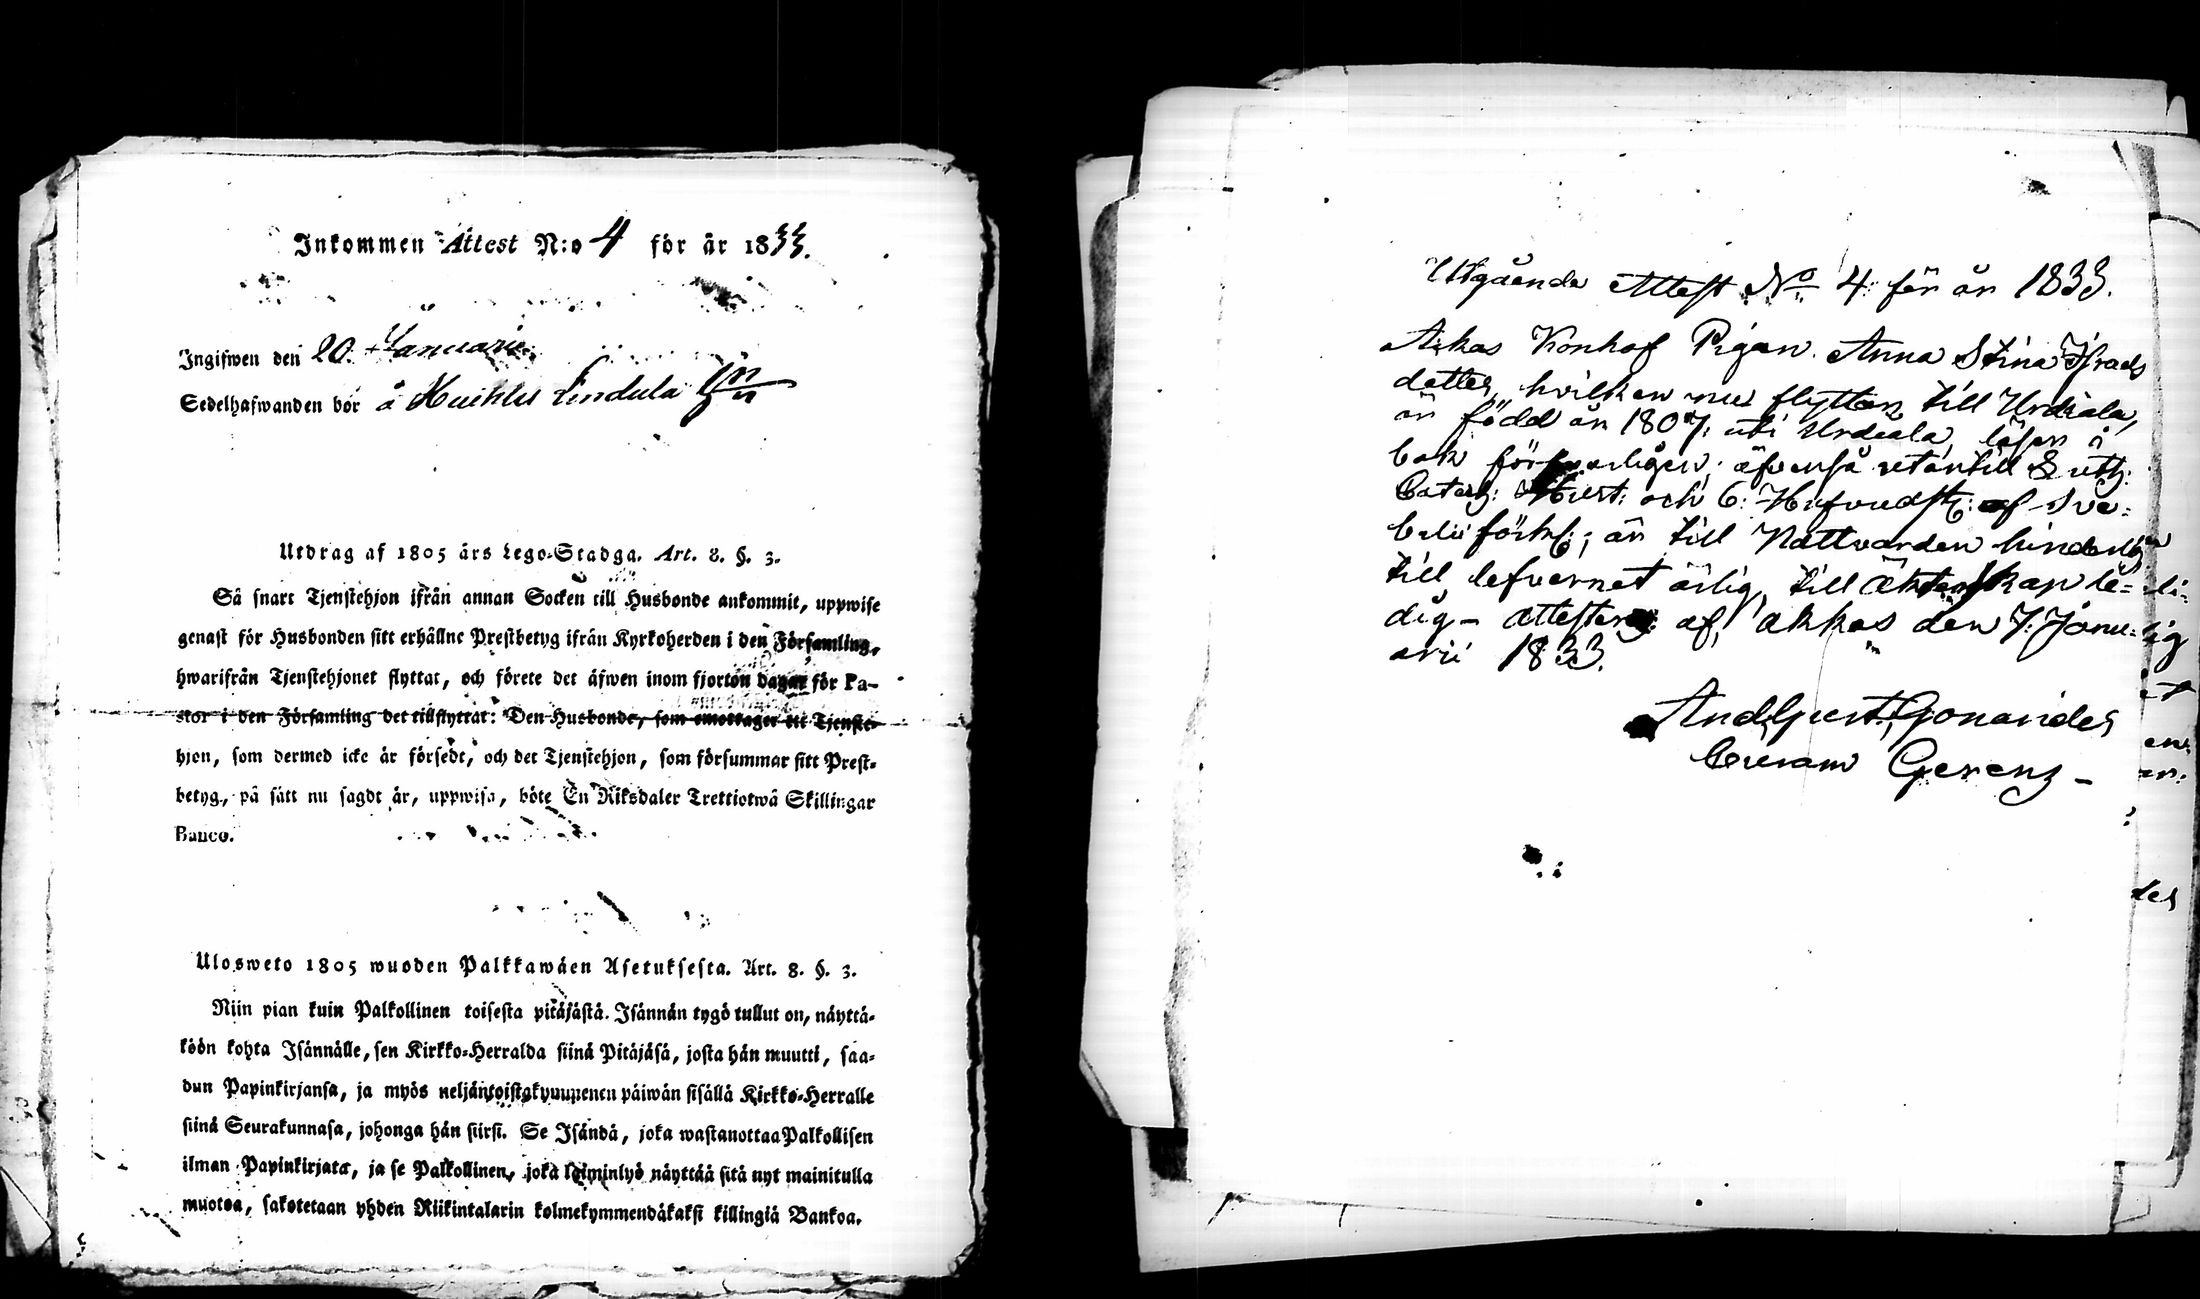 Inkommen Attest N:o 4 för år 1833.
Ingifwen den 20 Januarii
Sedelhafwanden bor å Huihtis Lindula
Utdrag af 1805 års Lego-Stadga. Art. 8. §. 3.
Så snart Tjenstehjon ifrån annan Socken till Husbonde ankommit, uppwise
genast för Husbonden sitt erhållne Prestbetyg ifrån Kyrkoherden i den Församling,
hwarifrån Tjenstehjonet flyttat, och förete det äfwen inom fjorton dagar för Pa-
stor i den Församling det tillflyttat: Den Husbonde, som emottager ett Tjenste-
hjon, som dermed icke är försedt, och det Tjenstehjon, som försummar sitt Prest-
betyg, på sätt nu sagdt är, uppwisa, böte En Riksdaler Trettiotwå Skillingar
Banco.
Ulosweto 1805 wuoden Palkkawäen Asetuksesta. Art. 8. §. 3.
Niin pian kuin Palkollinen toisesta pitäjästä Isännän tygö tullut on, näyttä-
köön kohta Isännälle, sen Kirkko-Herralda siinä Pitäjäsä, josta hän muutti, saa-
dun Papinkirjansa, ja myös neljäntoistakymmenen päiwän sisällä Kirkko-Herralle
siinä Seurakunnasa, johonga hän siirsi. Se Isändä, joka wastanottaa Palkollisen
ilman Papinkirjata, ja se Palkollinen, joka laiminlyö näyttää sitä nyt mainitulla
muotoa, sakotetaan yhden Riikintalarin kolmekymmendäkaksi killingiä Bankoa.
Utgående Attest No. 4 för år 1833.
Akas Pigan Anna Stina Israels
dotter, hvilken nu flyttar till Urdiala,
är född år 1807. uti Urdiala, läser i
bok försvarligen, äfvenså utantill
och 6: Hufvudst: af Sve-
belii förkl:, är till Nattvarden hinderlös
till lefvernet ärlig, till Äktenskap le-
dig – attesterar af, Akkas den 7. Janu-
arii 1833.